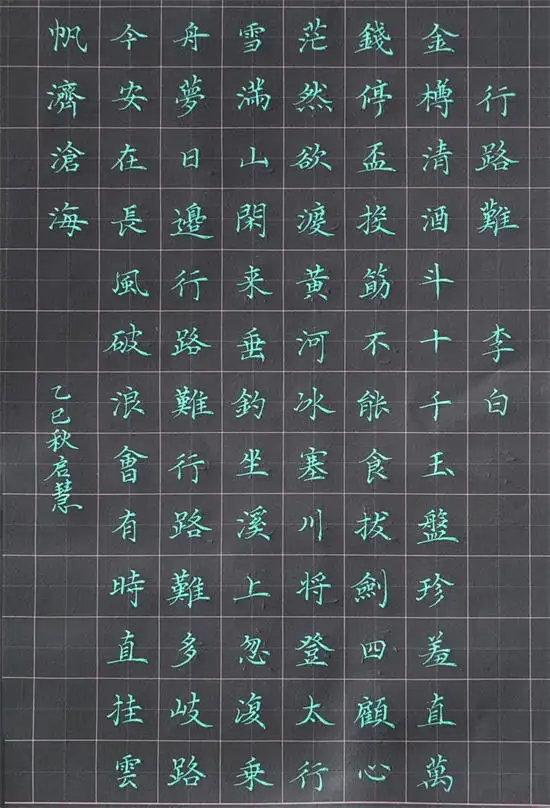 行路難 李白
金樽清酒斗十千玉盤珍羞直萬
錢停盃投筯不能食拔劍四顧心
茫然欲渡黄河冰塞川将登太行
雪滿山閑来垂釣坐溪上忽復乗
舟夢日邊行路難行路難多岐路
今安在長風破浪會有時直挂雲
帆濟滄海
乙巳秋启慧